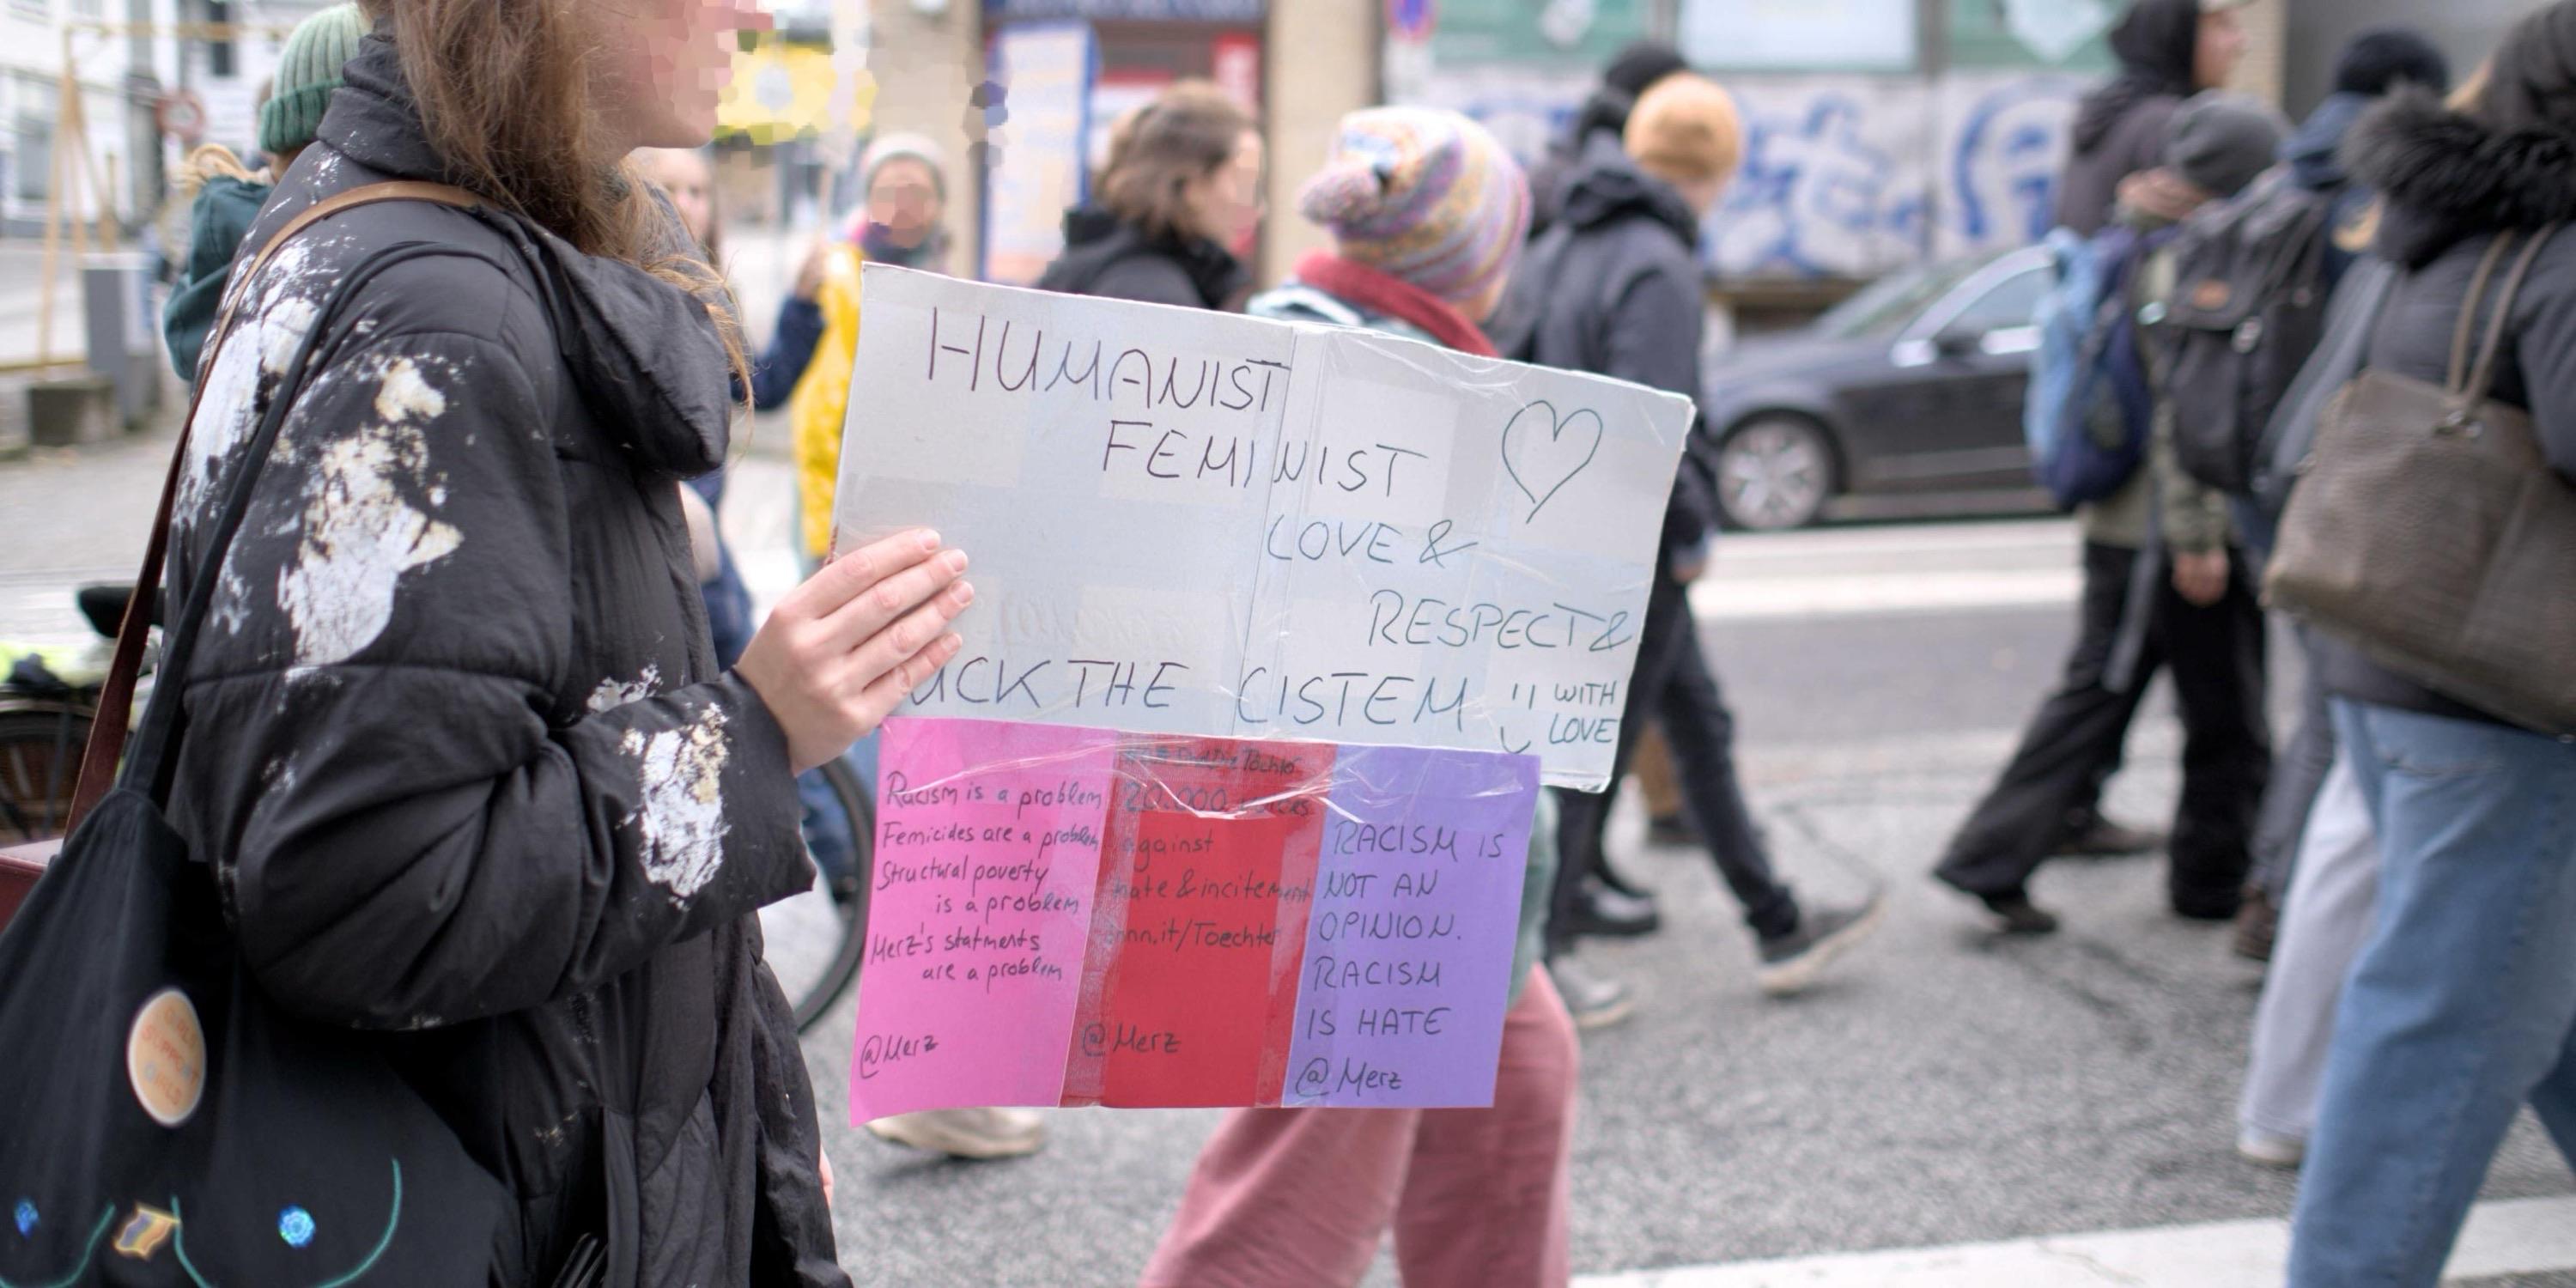 HUMANIST
FEMINIST
LOVE &
RESPECT &
UCK THE CISTEM
WITH
LOVE
Racism is a problem
Femicides are a problem
Structural poverty
is a problem
Merz's statments
are a problem
@Merz
Töchter
20.000
against
hate & incitement
nnn.it/Toechter
@Merz
RACISM IS
NOT AN
OPINION.
RACISM
IS HATE
@Merz
GIRLS
SUPPORT
GIRLS